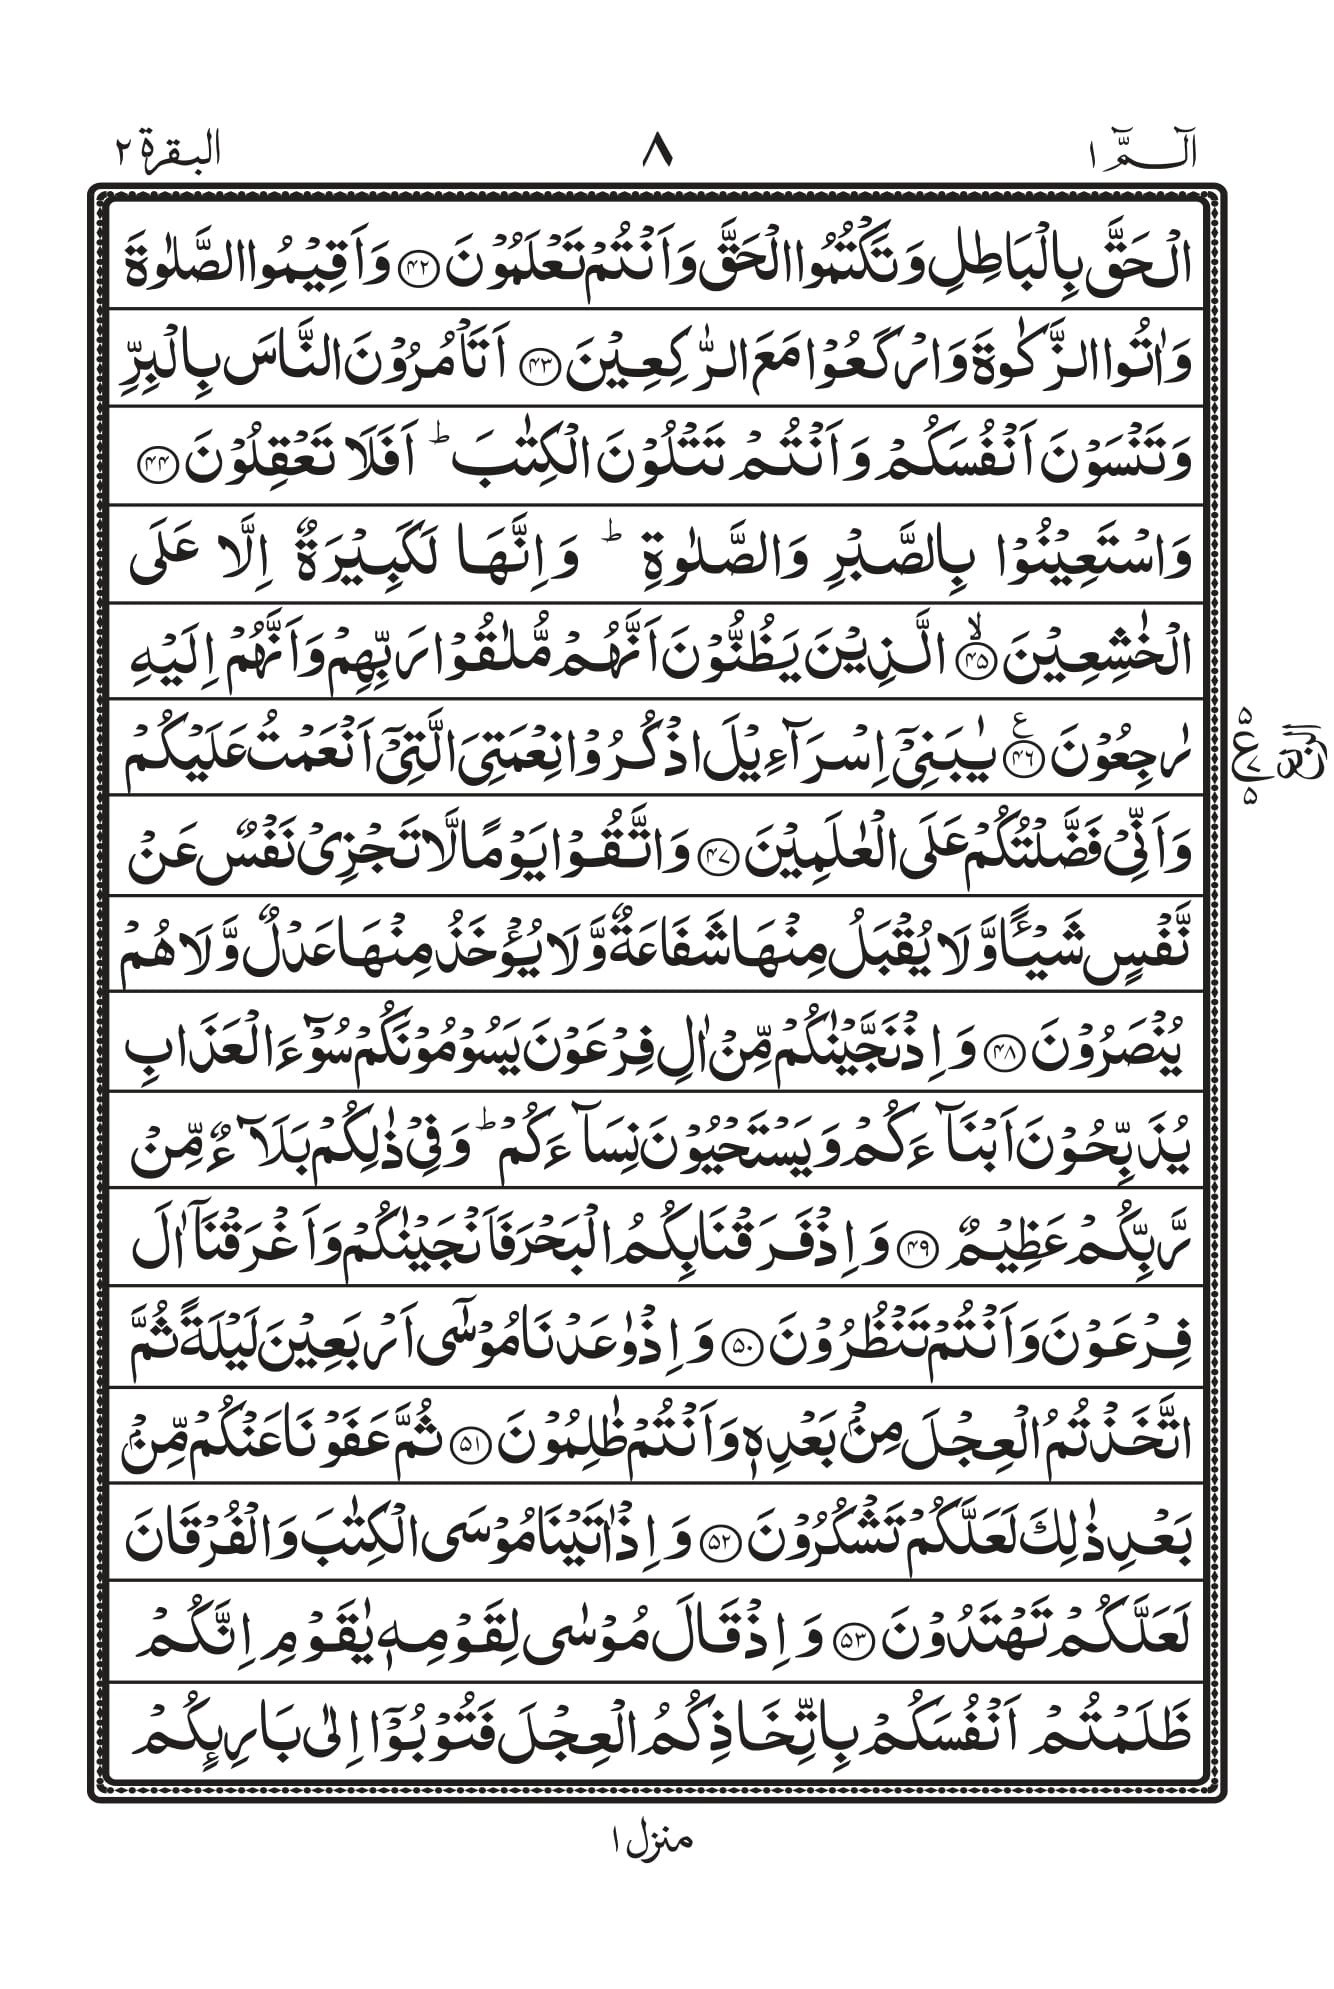 الٓـمّٓ ١ ٨ البقرة ٢
الۡحَقَّ بِالۡبَاطِلِ وَتَكۡتُمُوا الۡحَقَّ وَاَنۡتُمۡ تَعۡلَمُوۡنَ ﴿۴۲﴾ وَاَقِيۡمُوا الصَّلٰوةَ
وَاٰتُوا الزَّكٰوةَ وَارۡكَعُوۡا مَعَ الرّٰكِعِيۡنَ ﴿۴۳﴾ اَتَاۡمُرُوۡنَ النَّاسَ بِالۡبِرِّ
وَتَنۡسَوۡنَ اَنۡفُسَكُمۡ وَاَنۡتُمۡ تَتۡلُوۡنَ الۡكِتٰبَ ؕ اَفَلَا تَعۡقِلُوۡنَ ﴿۴۴﴾
وَاسۡتَعِيۡنُوۡا بِالصَّبۡرِ وَالصَّلٰوةِ ؕ وَاِنَّهَا لَكَبِيۡرَةٌ اِلَّا عَلَى
الۡخٰشِعِيۡنَ ۙ﴿۴۵﴾ الَّذِيۡنَ يَظُنُّوۡنَ اَنَّهُمۡ مُّلٰقُوۡا رَبِّهِمۡ وَاَنَّهُمۡ اِلَيۡهِ
رٰجِعُوۡنَ ﴿۴۶﴾ ع يٰبَنِىۡٓ اِسۡرَآءِيۡلَ اذۡكُرُوۡا نِعۡمَتِىَ الَّتِىۡٓ اَنۡعَمۡتُ عَلَيۡكُمۡ
۵ ع ۷ ۵
وَاَنِّىۡ فَضَّلۡتُكُمۡ عَلَى الۡعٰلَمِيۡنَ ﴿۴۷﴾ وَاتَّقُوۡا يَوۡمًا لَّا تَجۡزِىۡ نَفۡسٌ عَنۡ
نَّفۡسٍ شَيۡـًٔا وَّلَا يُقۡبَلُ مِنۡهَا شَفَاعَةٌ وَّلَا يُؤۡخَذُ مِنۡهَا عَدۡلٌ وَّلَا هُمۡ
يُنۡصَرُوۡنَ ﴿۴۸﴾ وَاِذۡ نَجَّيۡنٰكُمۡ مِّنۡ اٰلِ فِرۡعَوۡنَ يَسُوۡمُوۡنَكُمۡ سُوۡٓءَ الۡعَذَابِ
يُذَبِّحُوۡنَ اَبۡنَآءَكُمۡ وَيَسۡتَحۡيُوۡنَ نِسَآءَكُمۡ ؕ وَفِىۡ ذٰلِكُمۡ بَلَآءٌ مِّنۡ
رَّبِّكُمۡ عَظِيۡمٌ ﴿۴۹﴾ وَاِذۡ فَرَقۡنَا بِكُمُ الۡبَحۡرَ فَاَنۡجَيۡنٰكُمۡ وَاَغۡرَقۡنَآ اٰلَ
فِرۡعَوۡنَ وَاَنۡتُمۡ تَنۡظُرُوۡنَ ﴿۵۰﴾ وَاِذۡ وٰعَدۡنَا مُوۡسٰٓى اَرۡبَعِيۡنَ لَيۡلَةً ثُمَّ
اتَّخَذۡتُمُ الۡعِجۡلَ مِنۡۢ بَعۡدِهٖ وَاَنۡتُمۡ ظٰلِمُوۡنَ ﴿۵۱﴾ ثُمَّ عَفَوۡنَا عَنۡكُمۡ مِّنۡۢ
بَعۡدِ ذٰلِكَ لَعَلَّكُمۡ تَشۡكُرُوۡنَ ﴿۵۲﴾ وَاِذۡ اٰتَيۡنَا مُوۡسَى الۡكِتٰبَ وَالۡفُرۡقَانَ
لَعَلَّكُمۡ تَهۡتَدُوۡنَ ﴿۵۳﴾ وَاِذۡ قَالَ مُوۡسٰى لِقَوۡمِهٖ يٰقَوۡمِ اِنَّكُمۡ
ظَلَمۡتُمۡ اَنۡفُسَكُمۡ بِاتِّخَاذِكُمُ الۡعِجۡلَ فَتُوۡبُوۡٓا اِلٰى بَارِئِكُمۡ
منزل ١